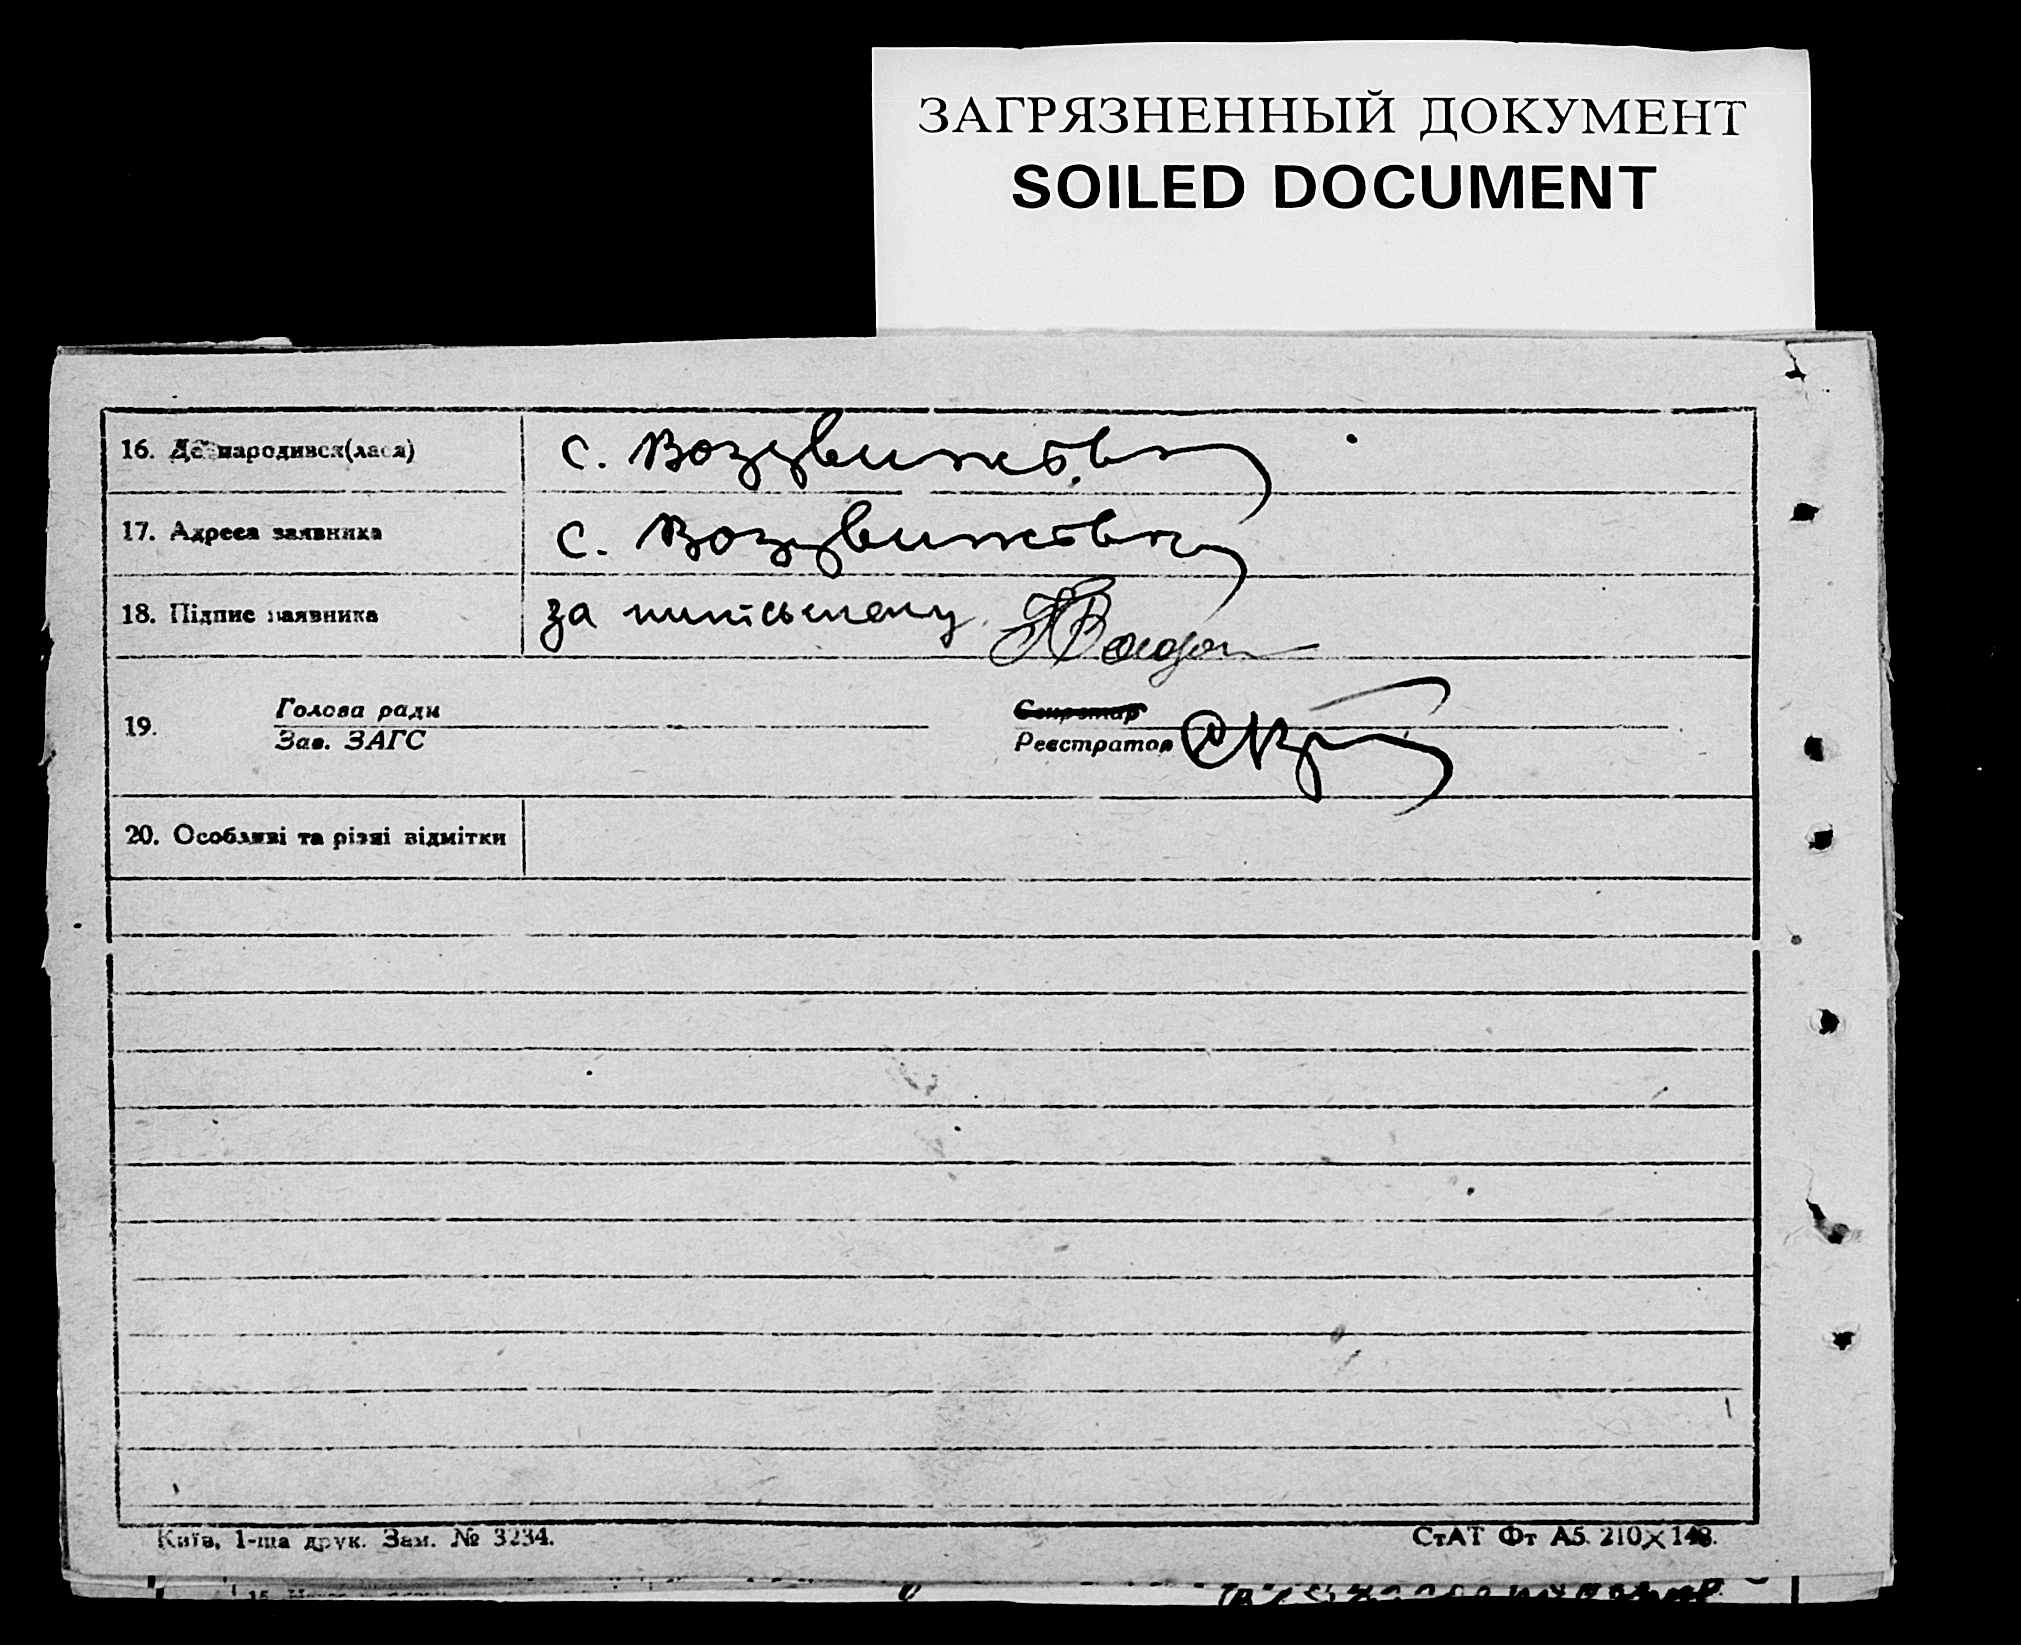 ЗАГРЯЗНЕННЫЙ ДОКУМЕНТ
SOILED DOCUMENT
16. Де народився(лася) с. Воздвижівка
17. Адреса заявника с. Воздвижівка
18. Підпис заявника за
19. Голова ради Секретар
Зав. ЗАГС Реєстратор
20. Особливі та різні відмітки
Київ, 1-ша друк. Зам. № 3234.
СтАТ Фт А5. 210×148.